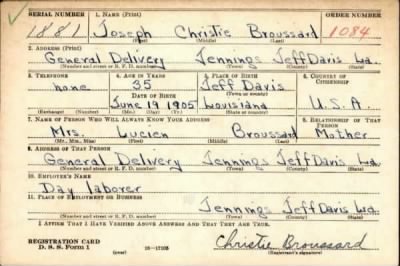 SERIAL NUMBER 1. NAME (Print) ORDER NUMBER
1881 Joseph Christie Broussard 1084
(First) (Middle) (Last)
2. ADDRESS (Print)
General Delivery Jennings Jeff Davis La.
(Number and street or R. F. D. number) (Town) (County) (State)
3. TELEPHONE 4. AGE IN YEARS 5. PLACE OF BIRTH 6. COUNTRY OF CITIZENSHIP
none 35 Jeff Davis
DATE OF BIRTH (Town or county)
June 19 1905 Louisiana U.S.A.
(Exchange) (Number) (Mo.) (Day) (Yr.) (State or country)
7. NAME OF PERSON WHO WILL ALWAYS KNOW YOUR ADDRESS 8. RELATIONSHIP OF THAT PERSON
Mrs. Lucien Broussard Mother
(Mr., Mrs., Miss) (First) (Middle) (Last)
9. ADDRESS OF THAT PERSON
General Delivery Jennings Jeff Davis La.
(Number and street or R. F. D. number) (Town) (County) (State)
10. EMPLOYER'S NAME
Day laborer
11. PLACE OF EMPLOYMENT OR BUSINESS
Jennings Jeff Davis La.
(Number and street or R. F. D. number) (Town) (County) (State)
I AFFIRM THAT I HAVE VERIFIED ABOVE ANSWERS AND THAT THEY ARE TRUE.
REGISTRATION CARD
D. S. S. Form 1 (over) 16—17105 Christie Broussard
(Registrant's signature)